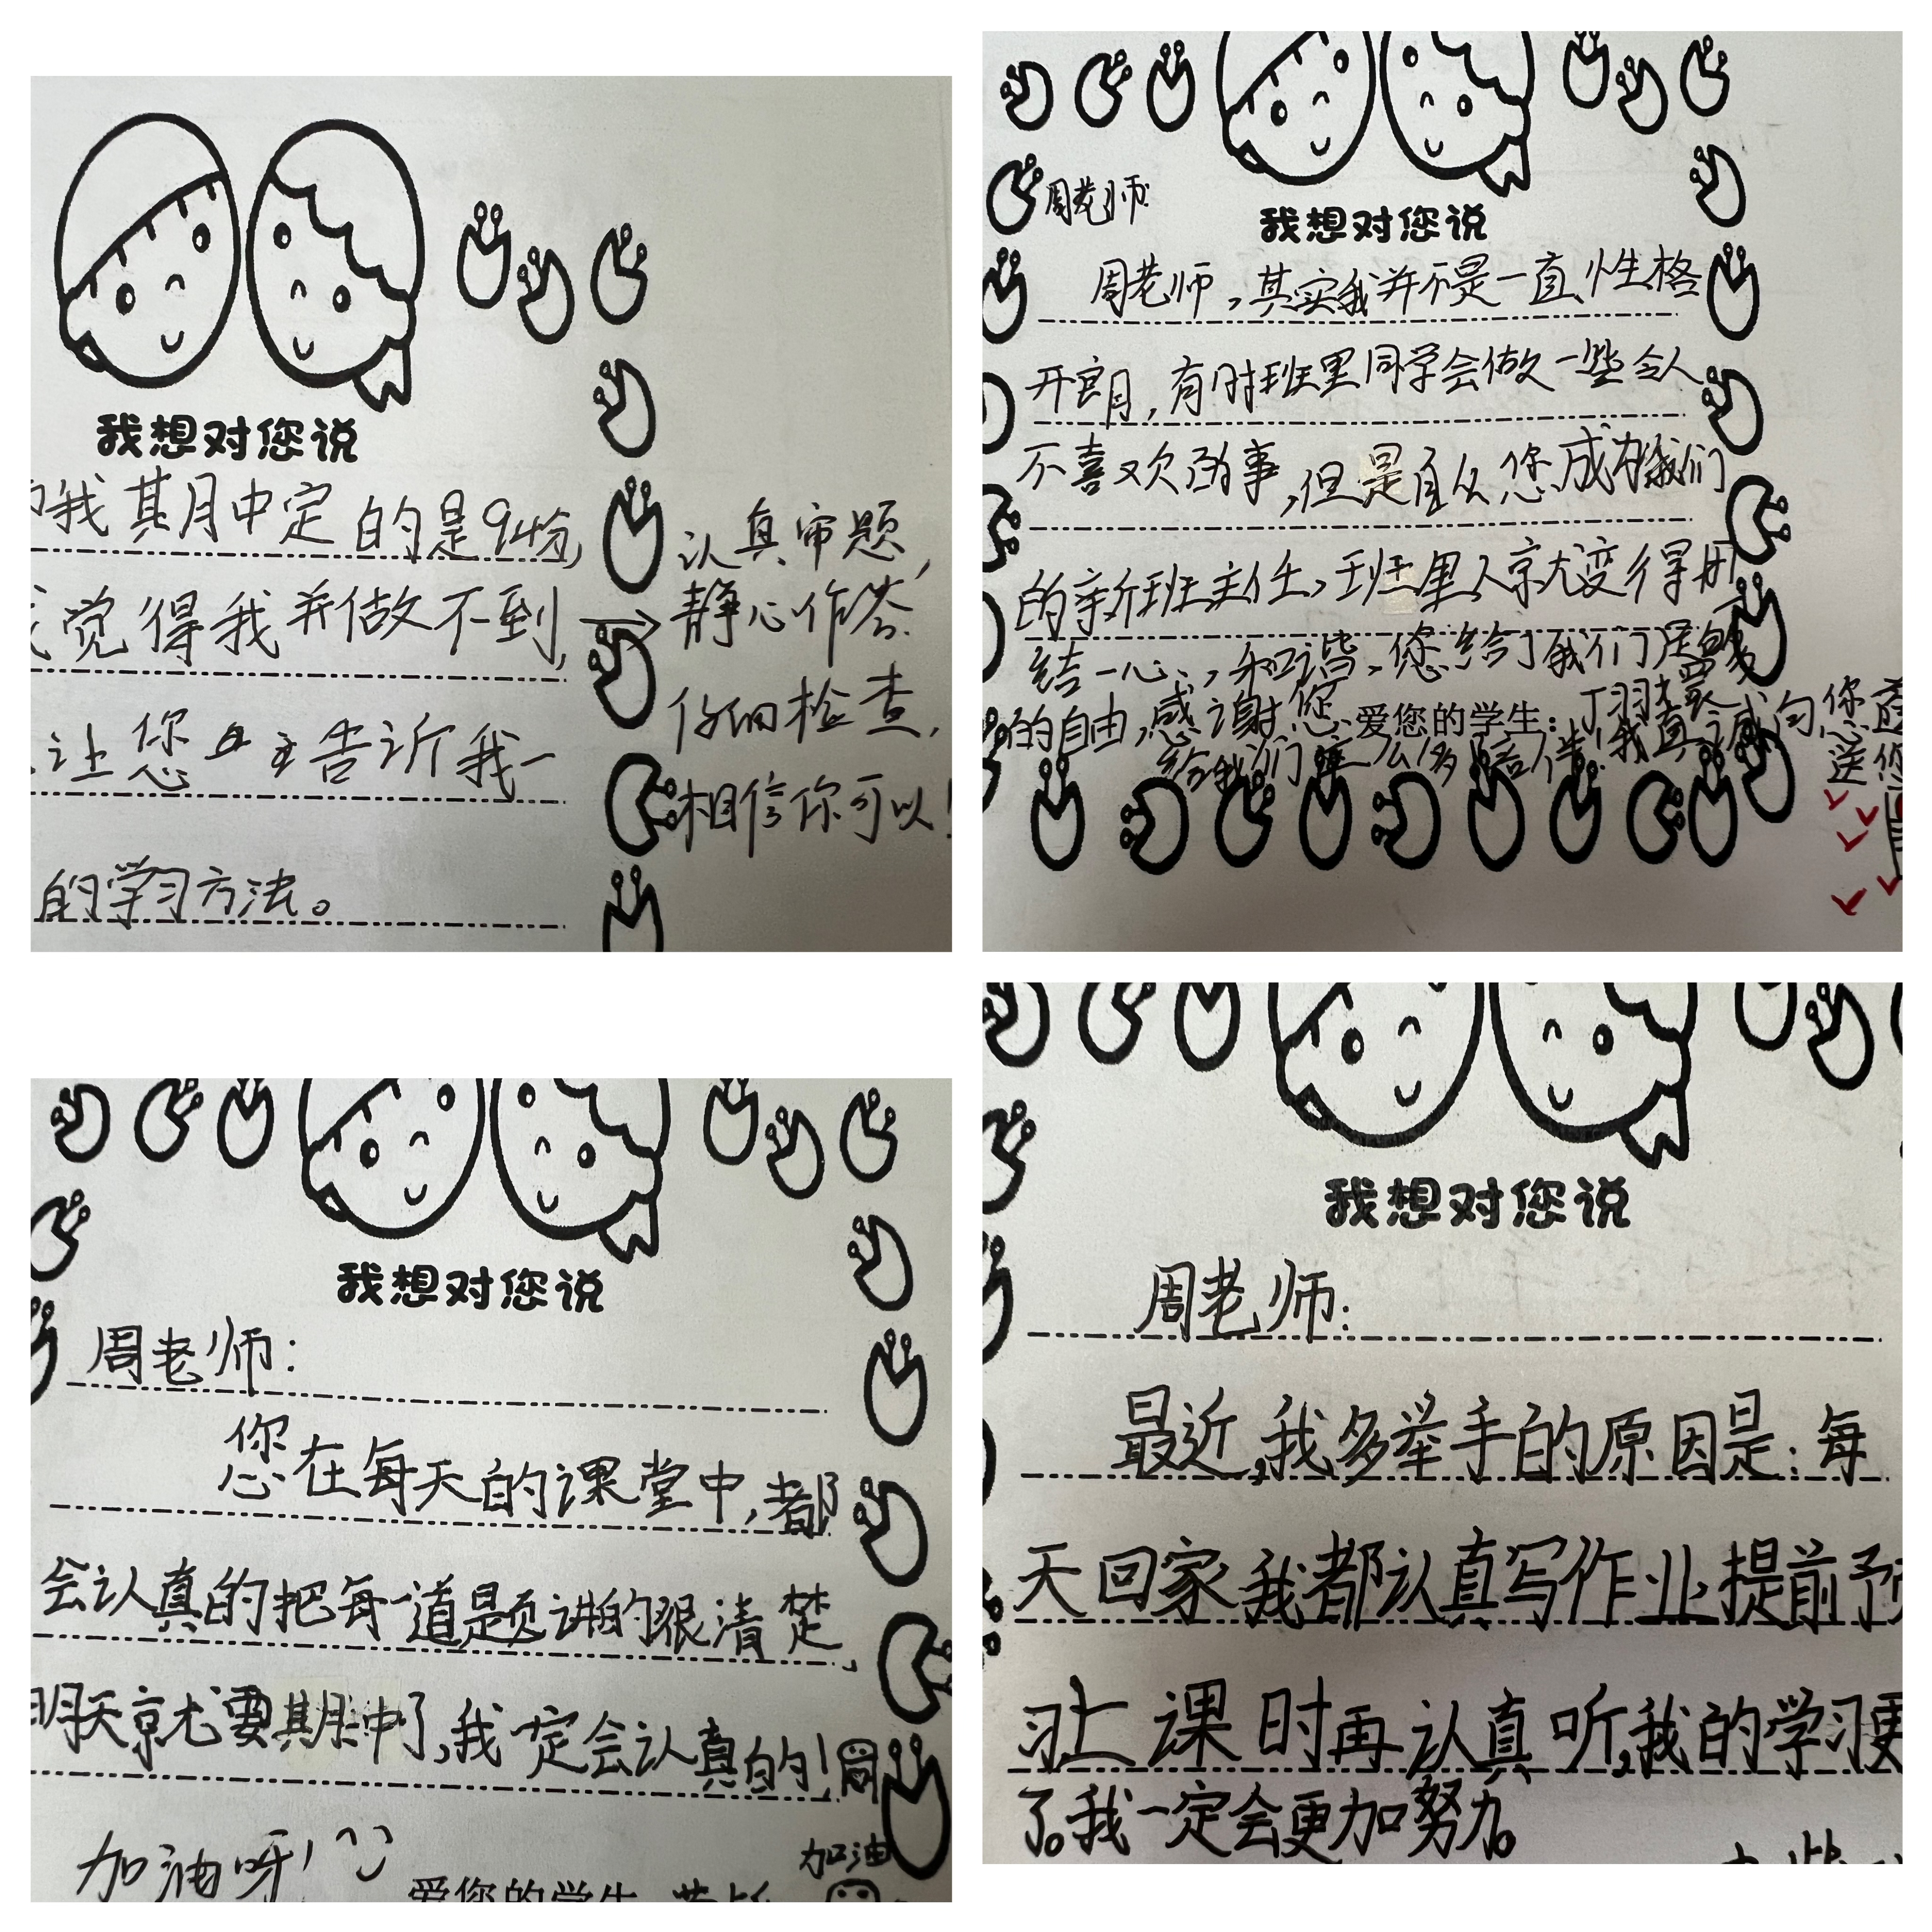 我想对您说
我其月中定的是94分,
觉得我并做不到,
让您 告诉我一
的学习方法。
认真审题,
静心作答.
仔细检查,
相信你可以!
周老师
我想对您说
周老师,其实我并不是一直性格
开朗,有时班里同学会做一些令人
不喜欢的事,但是自从您成为我们
的新班主任,班里人就变得团
结一心,和谐,您给了我们足够
的自由,感谢您,爱您的学生:
给我们这么多陪伴!我真诚向您
我想对您说
周老师:
您在每天的课堂中,都
会认真的把每一道题讲的很清楚,
明天就要期中了,我一定会认真的!周
加油呀!
加油
爱您的学生
我想对您说
周老师:
最近,我多举手的原因是:每
天回家我都认真写作业提前预
习上课时再认真听,我的学习更
了。我一定会更加努力。